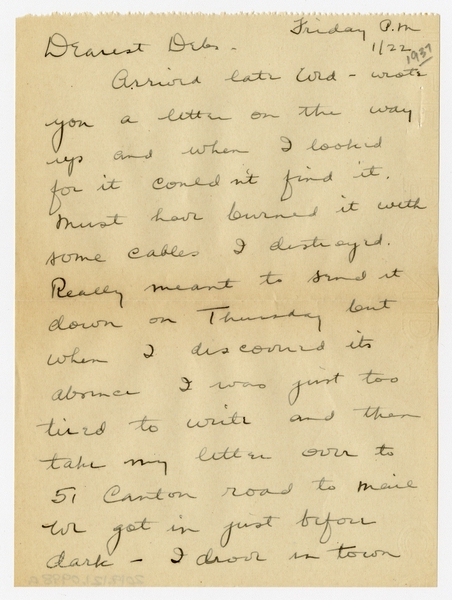 Friday P.M
1/22
1937
Dearest Debs -
Arrived late Wed - wrote
you a letter on the way
up and when I looked
for it could n't find it.
Must have burned it with
some cables I destroyed.
Really meant to send it
down on Thursday but
when I discovered its
absence I was just too
tired to write and then
take my letter over to
51 Canton road to mail
We got in just before
dark - I drove in town